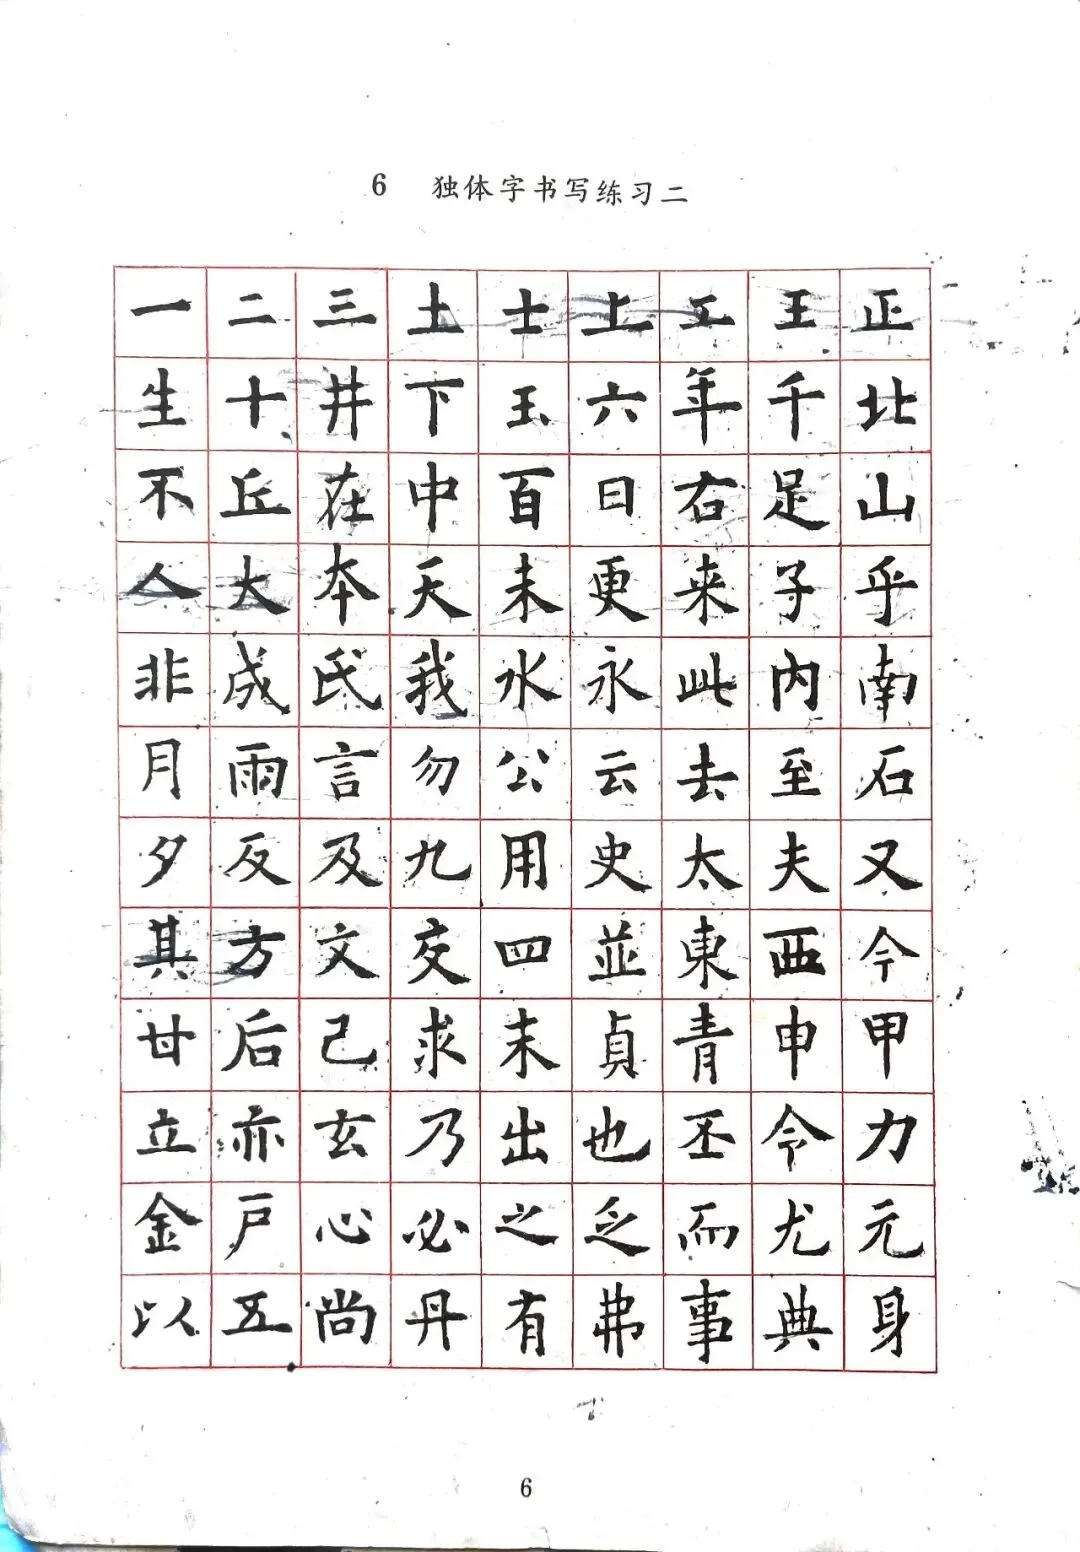 6 独体字书写练习二
一二三土士上工王正
生十井下玉六年千北
不丘在中百日右足山
人大本天未更来子乎
非成氏我水永此内南
月雨言勿公云去至石
夕反及九用史太夫又
其方文交四並東西今
甘后己求末貞青申甲
立亦玄乃出也丕令力
金戶心必之乏而尤元
以五尚丹有弗事典身
6